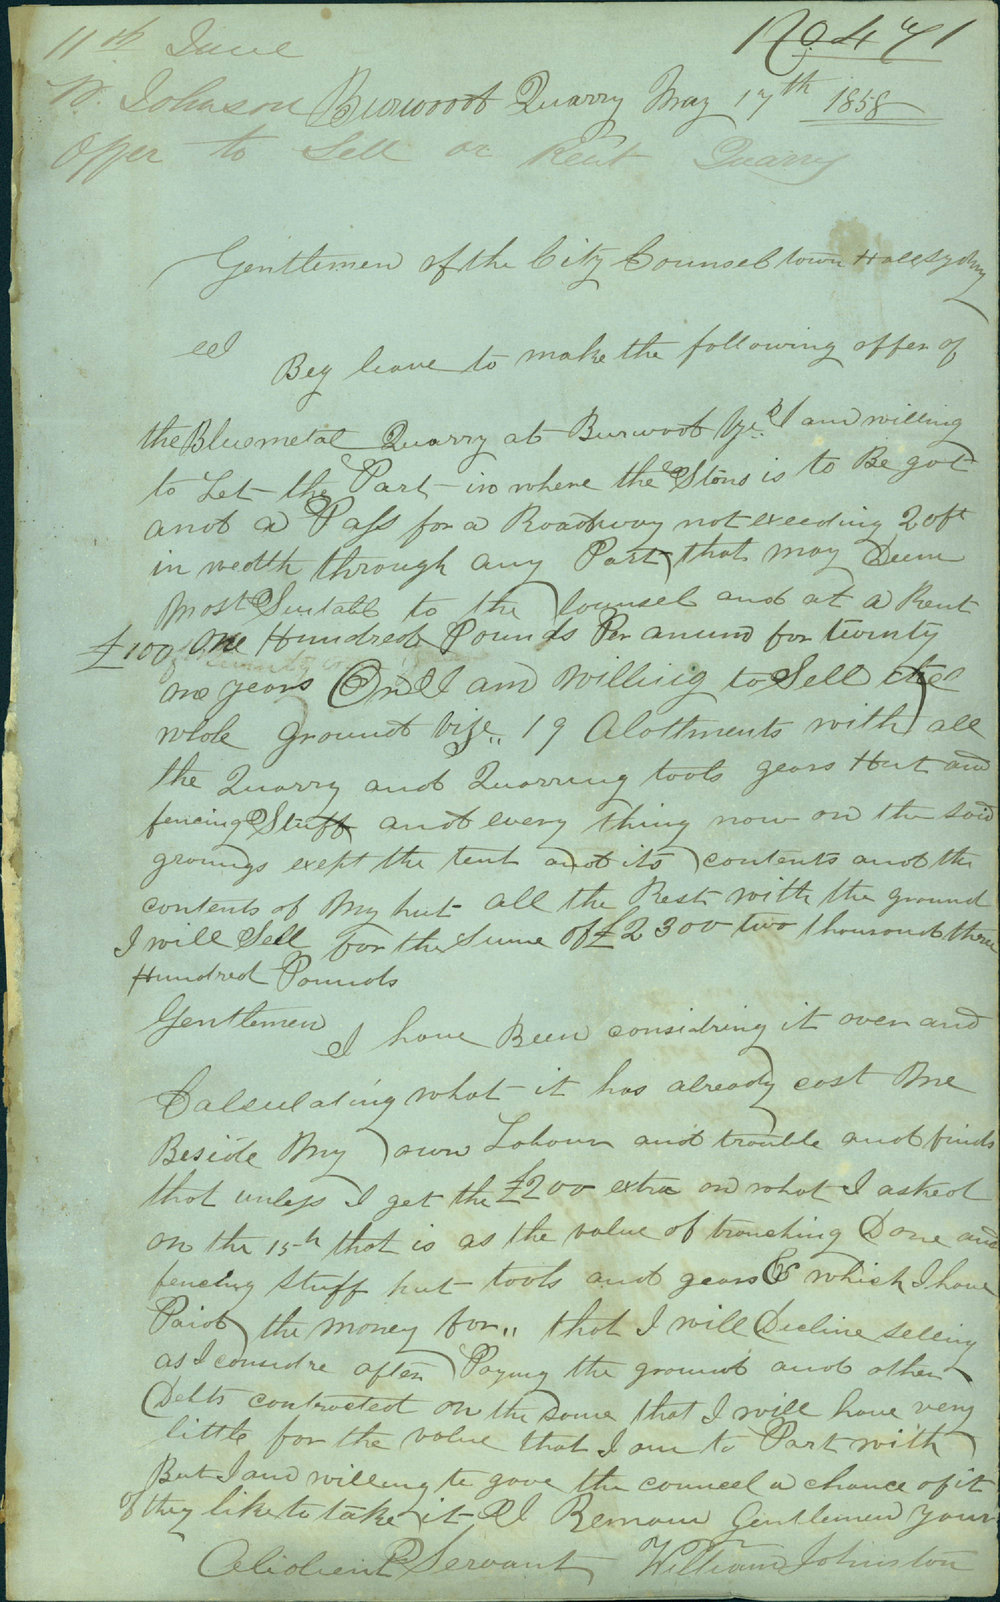 No 471
11th June
W. Johnson
Burwood Quarry May 17th 1858
Offer to Sell or Rent Quarry
Gentlemen of the City Counsel town Hall Sydny
I
Beg leave to make the following offer of
the Bluemetal Quarry at Burwood Vize I am willing
to Let the Part in where the Stons is to Be got
and a Pass for a Roadway not exeeding 20ft
in wedth through any Part that may Deem
Most Suitabl to the Counsel and at a Rent
£100 One Hundred Pounds Per anum for twinty
one years Or I am Willing to Sell the
whole ground Vize 19 Alottments with all
the Quarry and Quarring tools gears Hut and
fencing Stuff and every thing now on the said
grounds exept the tent and its contents and the
contents of My hut all the Rest with the ground
I will Sell for the Sume of £2300 two thousand three
Hundred Pounds
Gentlemen
I have Been considring it over and
Calsulating what it has already cost Me
Beside My own Labour and trouble and finds
that unless I get the £200 extra on what I asked
on the 15th that is as the value of trenching Done and
fencing Stuff hut tools and gears &c which I have
Paid the money for,, that I will Decline selling
as I considre after Paying the ground and other
Debts contracted on the same that I will have very
little for the value that I am to Part with
But I am willing to gave the councel a chance of it
if they like to take it I Remain Gentlemen Your
Obidient Servant William Johnston